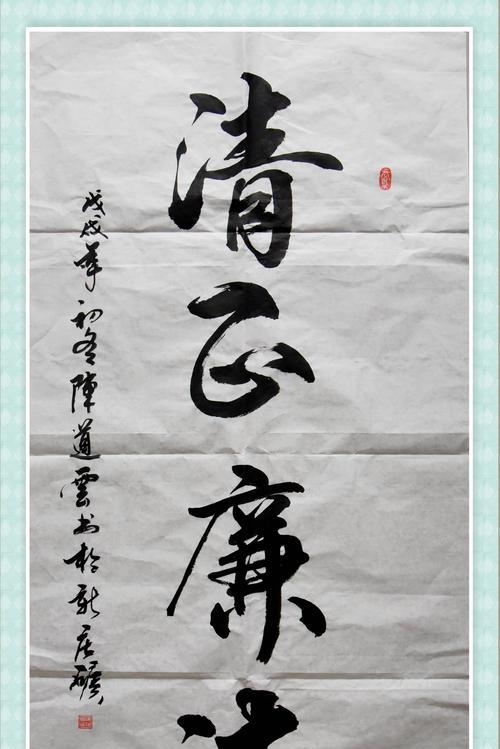 清正廉
戊戌年初冬陳道雲书於新庄礦